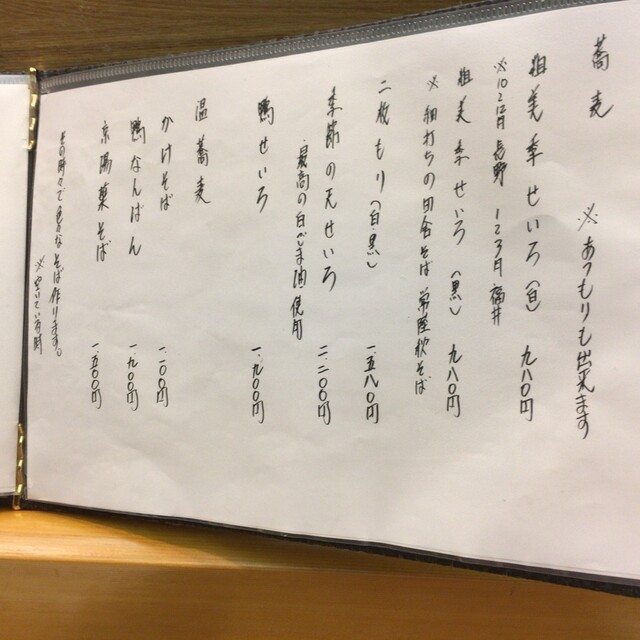 蕎麦
※あつもりも出来ます
粗美季せいろ(白) 九八〇円
※10 2 12月 長野 123月 福井
粗美季せいろ(黒) 九八〇円
※粗打ちの田舎そば 常陸秋そば
二枚もり(白・黒) 一、五八〇円
季節の天せいろ 二、二〇〇円
最高の白ごま油使用
鴨せいろ 一、九〇〇円
温蕎麦
かけそば 一、一〇〇円
鴨なんばん 一、九〇〇円
京湯葉そば 一、五〇〇円
その時々で色々なそば作ります。
※空いている時